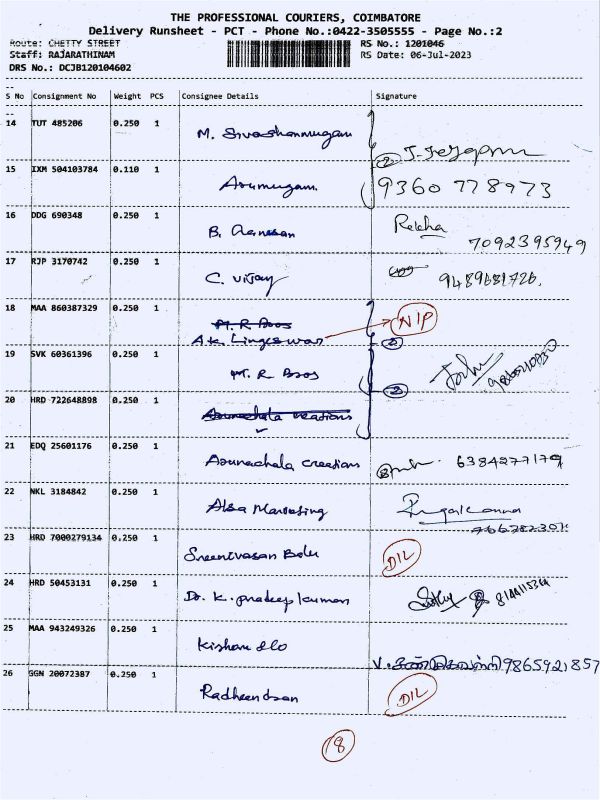 THE PROFESSIONAL COURIERS, COIMBATORE
Delivery Runsheet - PCT - Phone No.:0422-3505555 - Page No.:2
Route: CHETTY STREET RS No.: 1201046
Staff: RAJARATHINAM RS Date: 06-Jul-2023
DRS No.: DCJB120104602
S No Consignment No Weight PCS Consignee Details Signature
14 TUT 485206 0.250 1 M. Sivashanmugam
15 IXM 504103784 0.110 1 Arumugam. 9360 778973
16 DDG 690348 0.250 1 B. Ganesan Rekha
7092395949
17 RJP 3170742 0.250 1 C. Vijay 9489681726.
18 MAA 860387329 0.250 1 M. R Bros NIP
A.K. Lingeswar
19 SVK 60361396 0.250 1 M. R Bros
20 HRD 722648898 0.250 1 Arunachala creations
21 EDQ 25601176 0.250 1 Arunachala creations 6384277179
22 NKL 3184842 0.250 1 Alsa Marketing
23 HRD 7000279134 0.250 1 Sreenivasan Balu DIL
24 HRD 50453131 0.250 1 Dr. K. pradeep kumar
25 MAA 943249326 0.250 1 Kishan
9865921857
26 GGN 20072387 0.250 1 DIL